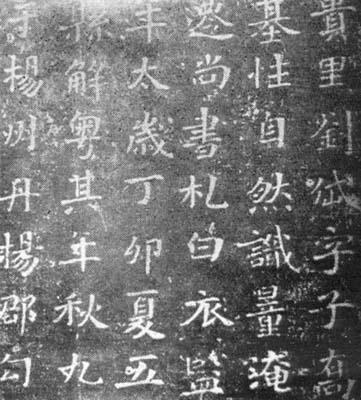 貴里劉岱字子喬
基性自然識量淹
遷尚書札白衣監
年太歲丁卯夏五
縣解粵其年秋九
于楊州丹楊郡勾